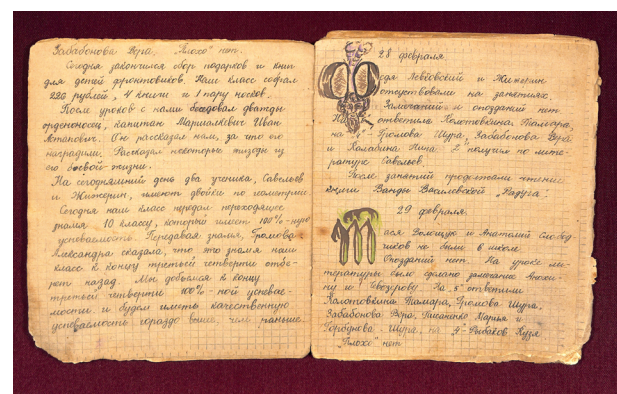 Забабонова Вера, "Плохо" нет.
Сегодня закончился сбор подарков и книг
для детей фронтовиков. Наш класс собрал
226 рублей, 4 книги и 1 пару носков.
После уроков с нами беседовал дважды
орденоносец, капитан Маршалкевич Иван
Он рассказал нам, за что его
наградили. Рассказал некоторые эпизоды из
его боевой жизни.
На сегодняшний день два ученика, Савельев
и Жижерин, имеют двойки по геометрии
Сегодня наш класс передал переходящее
знамя 10 классу, который имеет 100%-ную
успеваемость. Передавая знамя, Громова
Александра сказала, что это знамя наш
класс к концу третьей четверти отбе-
рет назад. Мы добьёмся к концу
третьей четверти 100%-ной успевае-
мости и будем иметь качественную
успеваемость гораздо выше, чем раньше.
28 февраля
Левковский и Жижерин
отсутствовали на занятиях.
Замечаний и опозданий нет
ответила Колотовкина Тамара,
на 4- Громова Шура, Забабонова Вера
и Каладина Нина. 2 получил по лите-
ратуре Савельев.
После занятий продолжали чтение
книги Ванды Василевской "Радуга".
29 февраля
Тася Домощук и Анатолий Слобод-
чиков не были в школе.
Опозданий нет. На уроке ли-
тературы было сделано замечание Анохи-
ну и На 5 ответили
Колотовкина Тамара, Громова Шура,
Забабонова Вера, Писаненко Марья и
Горбунова Шура, на 4- Рыбаков Кузя
"Плохо" нет